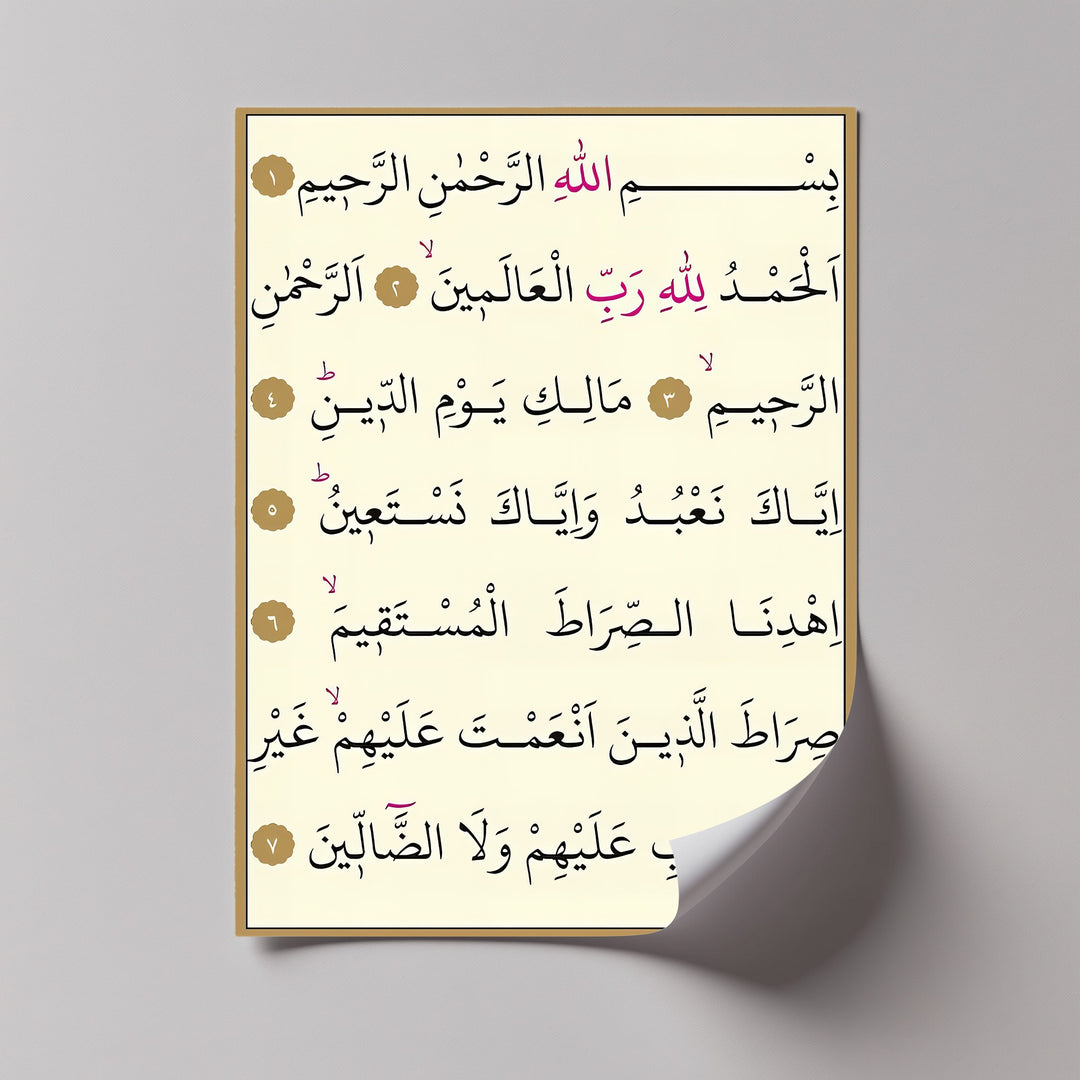 بِسْمِ اللّٰهِ الرَّحْمٰنِ الرَّح۪يمِ ١
اَلْحَمْدُ لِلّٰهِ رَبِّ الْعَالَم۪ينَ ۙ ٢ اَلرَّحْمٰنِ
الرَّح۪يمِ ۙ ٣ مَالِكِ يَوْمِ الدّ۪ينِ ۜ ٤
اِيَّاكَ نَعْبُدُ وَاِيَّاكَ نَسْتَع۪ينُ ۜ ٥
اِهْدِنَا الصِّرَاطَ الْمُسْتَق۪يمَ ۙ ٦
صِرَاطَ الَّذ۪ينَ اَنْعَمْتَ عَلَيْهِمْ ۙ غَيْرِ
عَلَيْهِمْ وَلَا الضَّٓالّ۪ينَ ٧